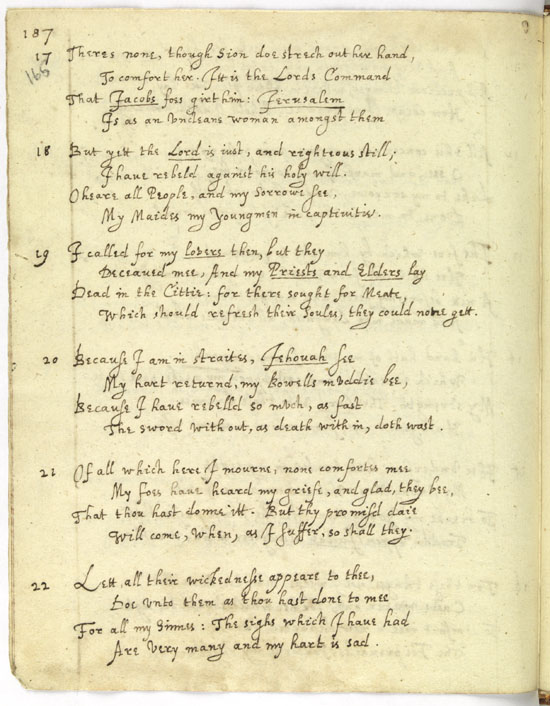 187
17 Theres none, though Sion doe strech out her hand,
166
To comfort her. Itt is the Lords Command
That Jacobs foes girt him: Jerusalem
Is as an Vncleane woman amongst them
18 But yett the Lord is iust, and righteous still;
I have rebeld against his holy will.
O heare all People, and my Sorrowe see,
My Maides my Youngmen in captivitie.
19 I called for my lovers then, but they
Deceaued mee, And my Priests and Elders lay
Dead in the Cittie: for there sought for Meate,
Which should refresh their Soules, they could none gett.
20 Because I am in straites, Jehovah see
My hart returnd, my Bowells muddie bee,
Because I have rebelld so much, as fast
The sword without, as death within, doth wast.
21 Of all which here I mourne, none comfortes mee
My foes have heard my griefe, and glad, they bee,
That thou hast donne itt. But thy promisd daie
Will come, when, as I suffer, so shall they.
22 Lett all their wickednesse appeare to thee,
Doe vnto them as thou hast done to mee
For all my sinnes: The sighs which I have had
Are very many and my hart is sad.